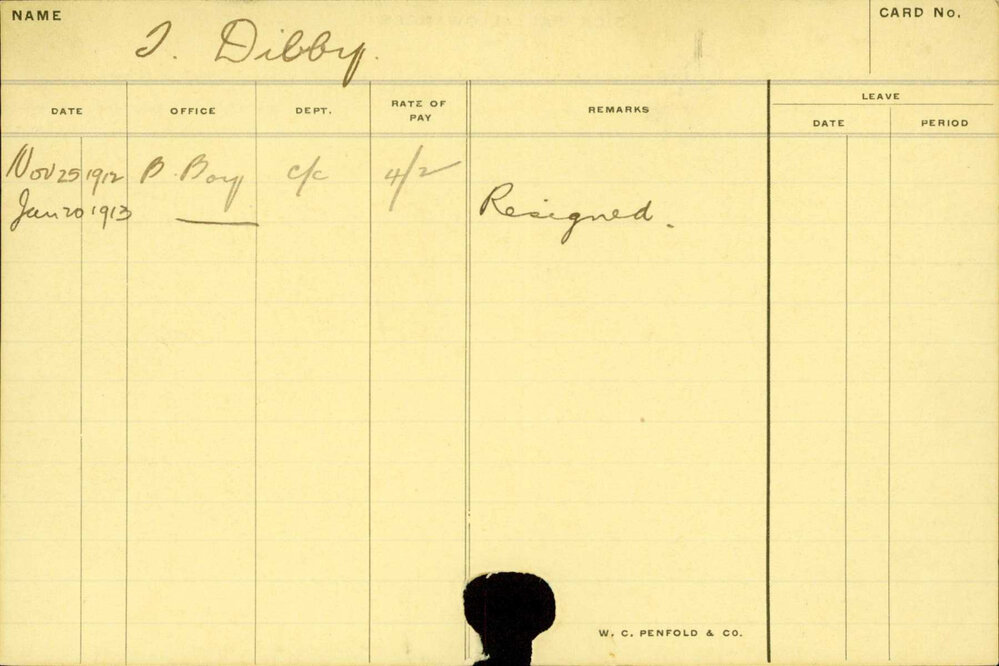 NAME
CARD No.
J. Dibby.
DATE OFFICE DEPT. RATE OF PAY REMARKS LEAVE
DATE PERIOD
Nov 25 1912 B. Boy c/c 4/2
Jan 20 1913 Resigned.
W. C. PENFOLD & CO.